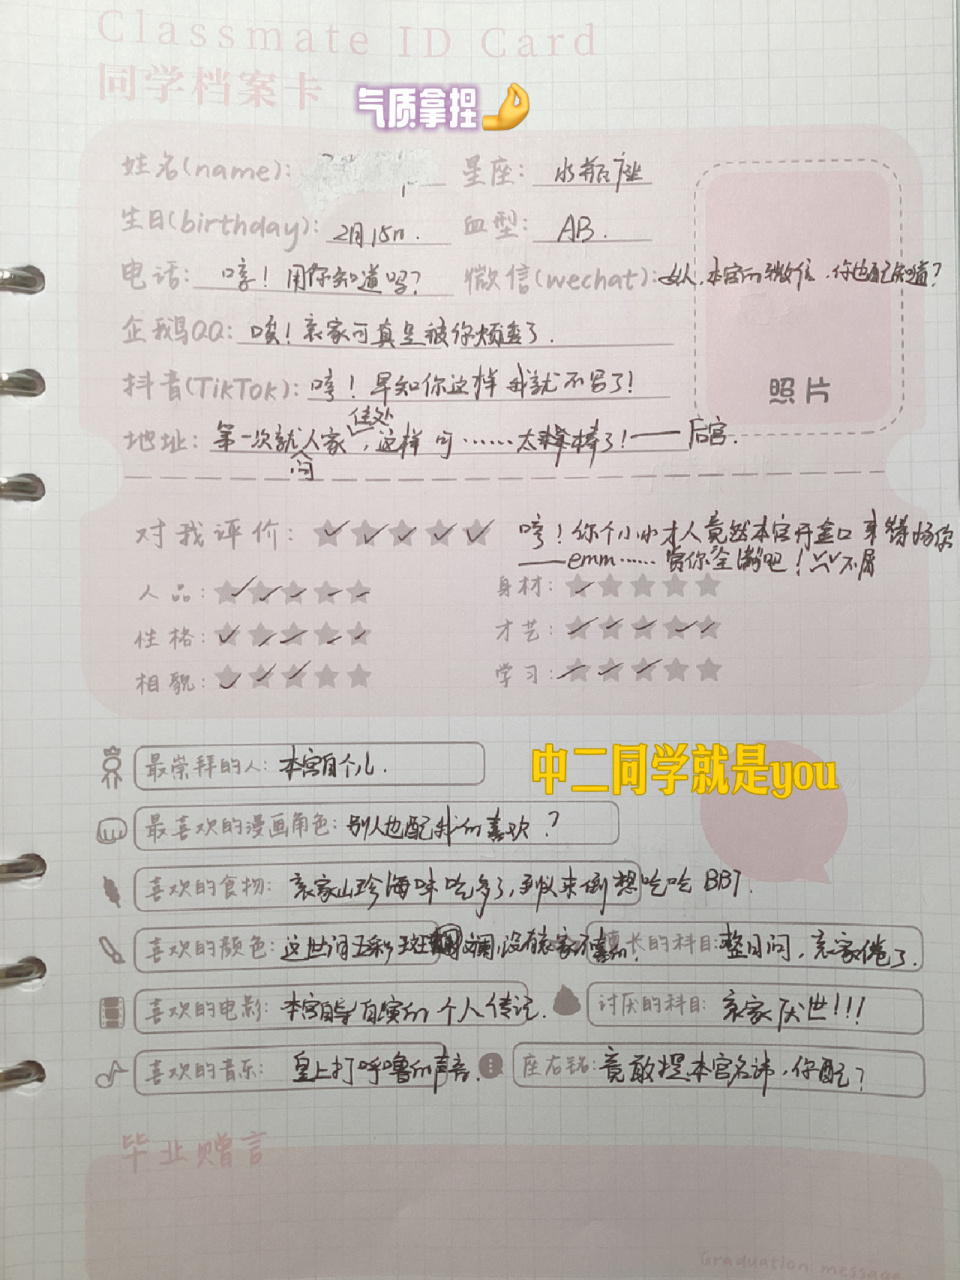 Classmate ID Card
同学档案卡
气质拿捏
姓名(name): 星座: 水瓶座
生日(birthday): 2月15日. 血型: AB.
电话: 哼！用你知道吗？ 微信(wechat): 女人,本宫的微信,你也配知道？
企鹅QQ: 唉！哀家可真是被你烦透了.
抖音(TikTok): 哼！早知你这样我就不写了！
地址: 第一次就问人家住处,这样可……太棒了！——后宫.
对我评价: 哼！你个小小才人竟然本宫开金口来夸扬你
——emm……赏你全满吧！不屑
人品: 身材:
性格: 才艺:
相貌: 学习:
最崇拜的人: 本宫自个儿.
中二同学就是you
最喜欢的漫画角色: 别人也配我的喜欢？
喜欢的食物: 哀家山珍海味吃多了,到以来倒想吃吃BBT.
喜欢的颜色: 这世间五彩斑斓,没有哀家不喜的. 擅长的科目: 整日问,哀家倦了.
喜欢的电影: 本宫自导自演的个人传记. 讨厌的科目: 哀家厌世!!!
喜欢的音乐: 皇上打呼噜的声音. 座右铭: 竟敢提本宫名讳,你配？
毕业赠言
Graduation message